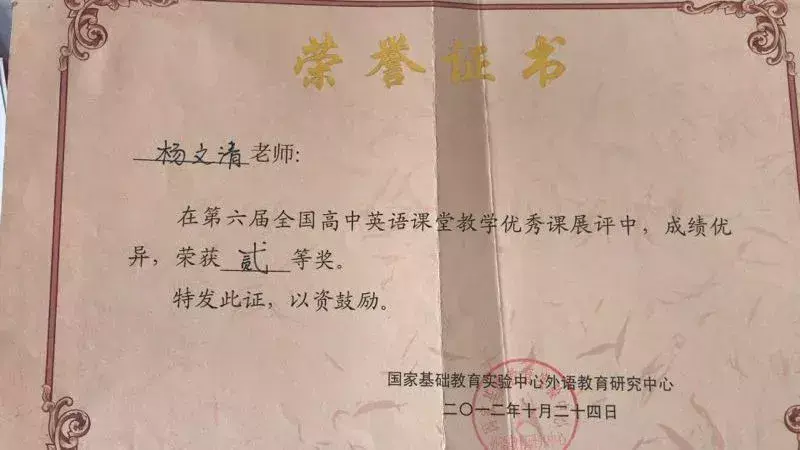 荣誉证书
杨文清老师:
在第六届全国高中英语课堂教学优秀课展评中，成绩优
异，荣获贰等奖。
特发此证，以资鼓励。
国家基础教育实验中心外语教育研究中心
二〇一二年十月二十四日